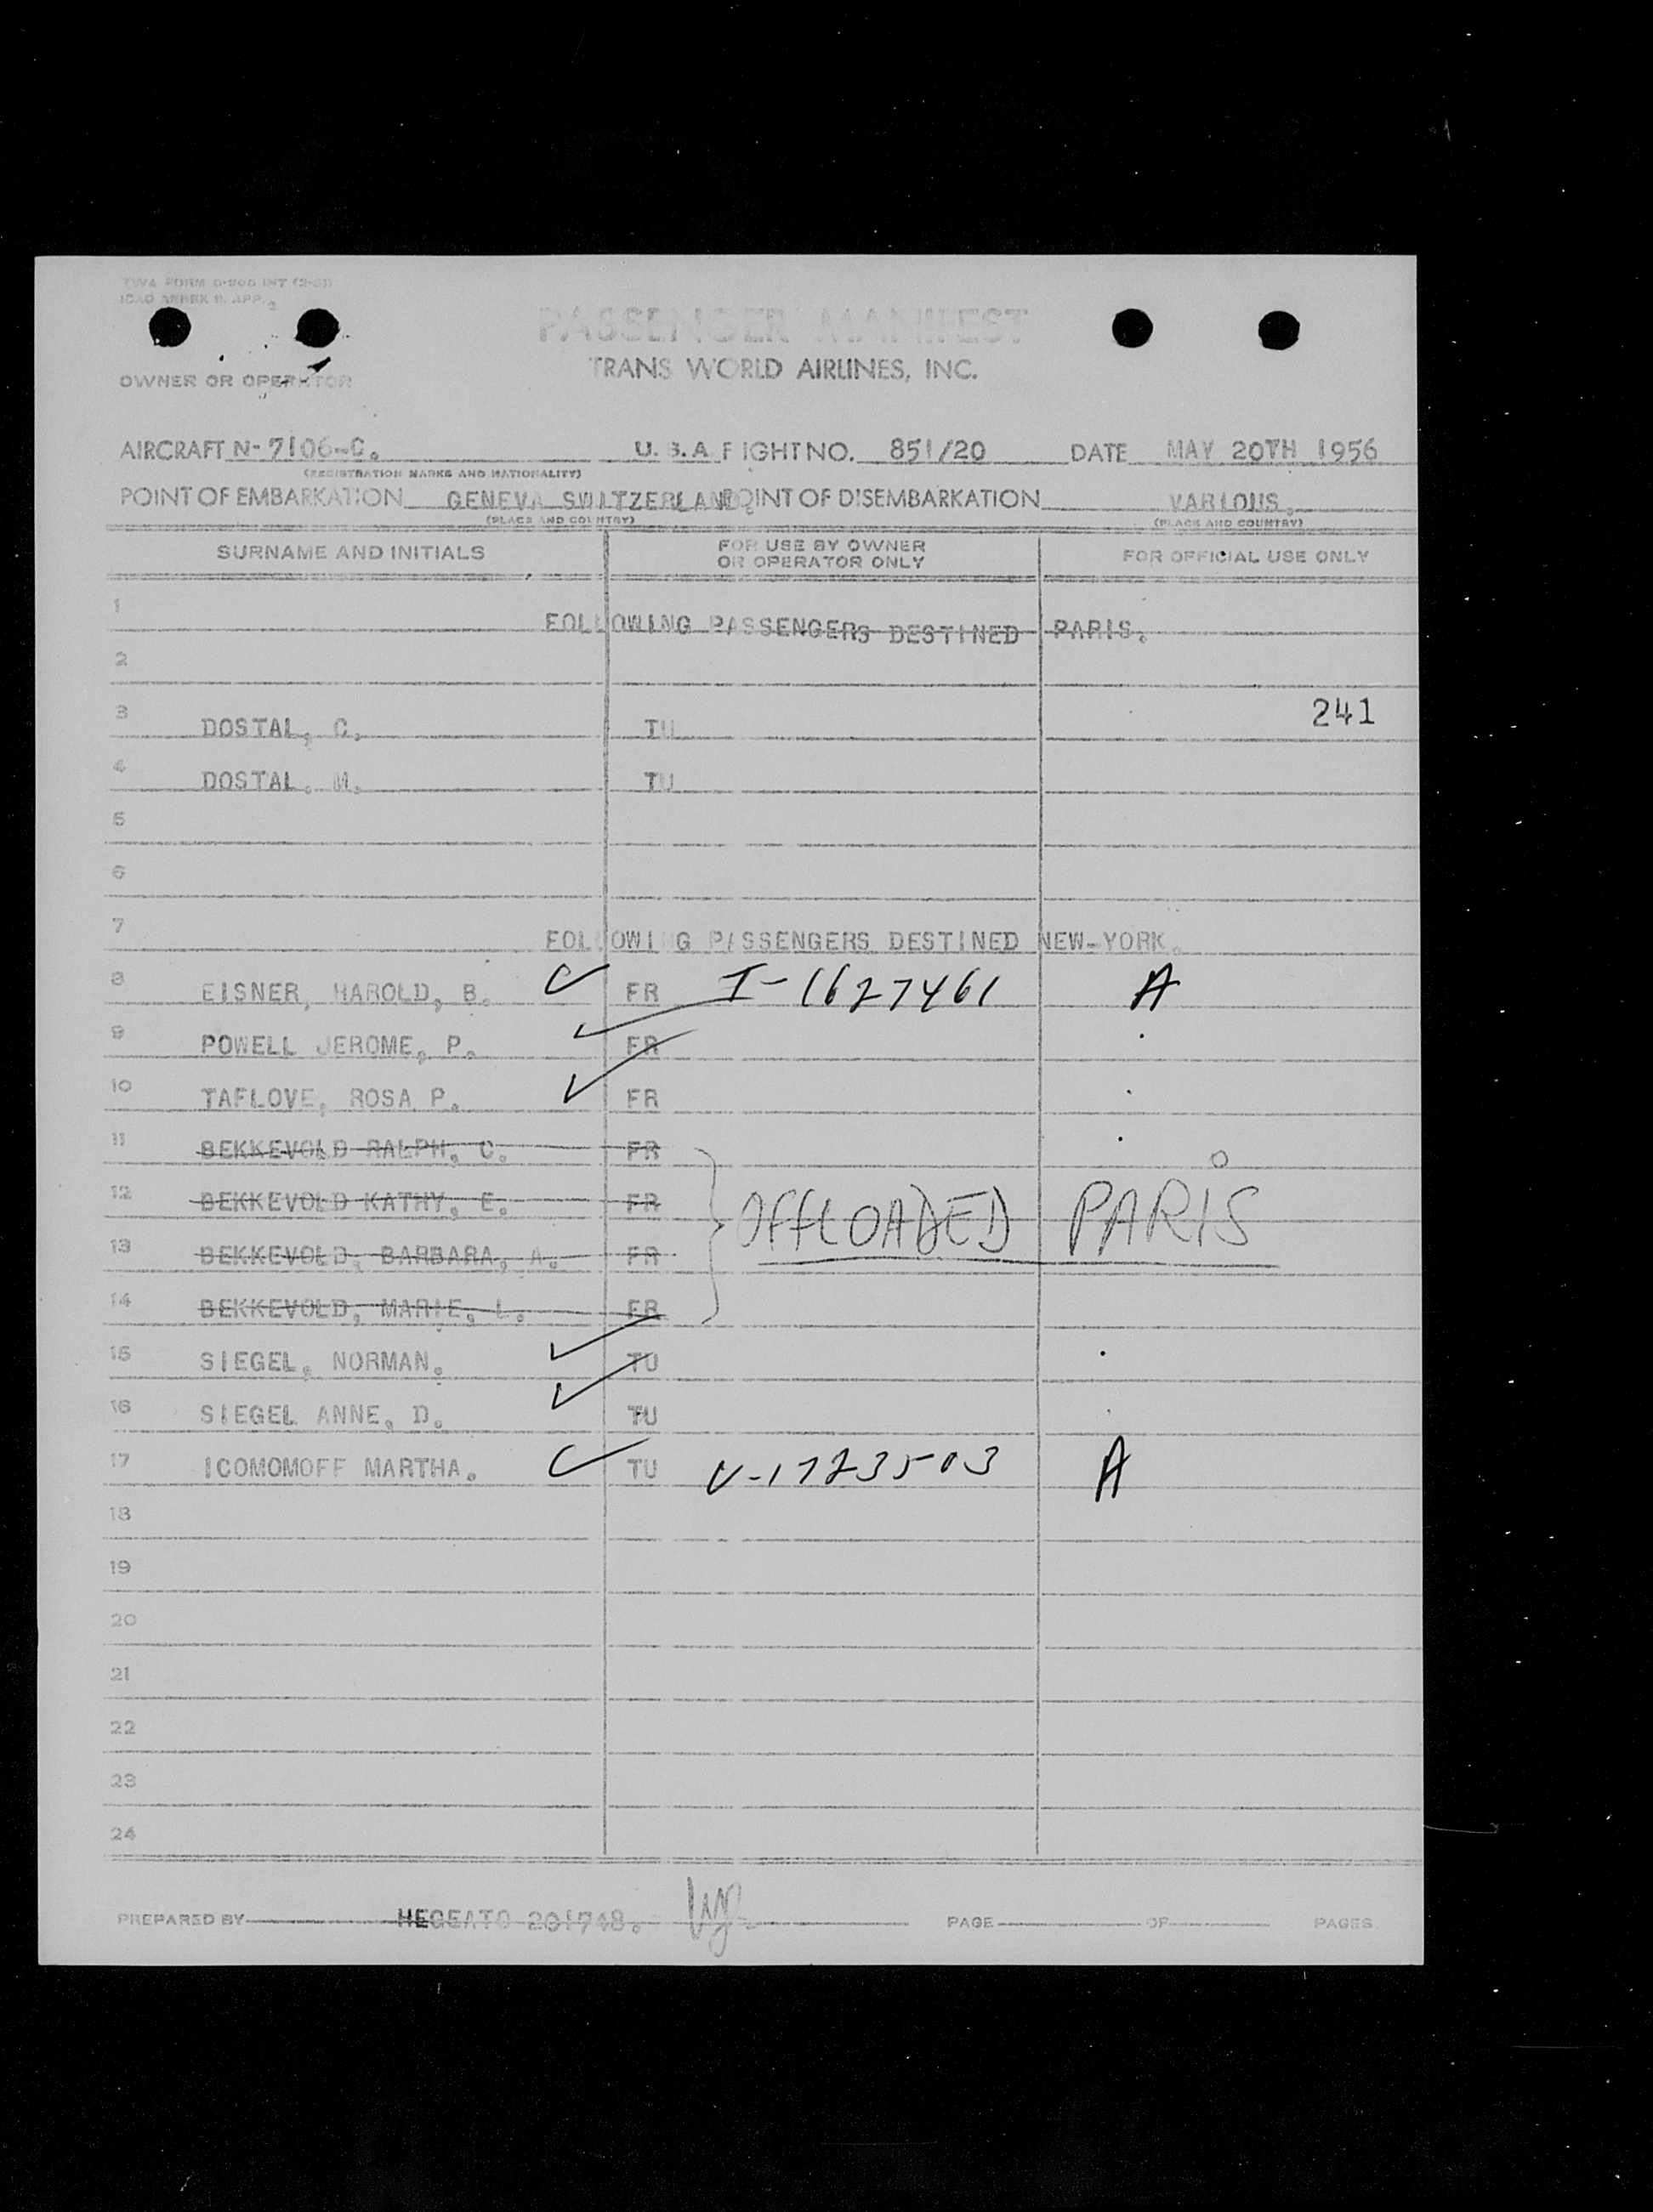 TWA FORM
ICAO ANNEX 9, APP. 2
PASSENGER MANIFEST
OWNER OR OPERATOR TRANS WORLD AIRLINES, INC.
AIRCRAFT N-7106-C. U.S.A FIGHT NO. 851/20 DATE MAY 20TH 1956
(REGISTRATION MARKS AND NATIONALITY)
POINT OF EMBARKATION GENEVA SWITZERLAND POINT OF DISEMBARKATION VARIOUS.
(PLACE AND COUNTRY) (PLACE AND COUNTRY)
SURNAME AND INITIALS FOR USE BY OWNER OR OPERATOR ONLY FOR OFFICIAL USE ONLY
1 FOLLOWING PASSENGERS DESTINED PARIS.
2
241
3 DOSTAL, C. TU
4 DOSTAL. M. TU
5
6
7 FOLLOWING PASSENGERS DESTINED NEW-YORK.
8 EISNER, HAROLD, B. FR I-1627461 A
9 POWELL JEROME, P. FR
10 TAFLOVE, ROSA P. FR
11 BEKKEVOLD RALPH, C. FR
12 BEKKEVOLD KATHY, E. FR OFFLOADED PARIS
13 BEKKEVOLD, BARBARA, A. FR
14 BEKKEVOLD, MARIE, L. FR
15 SIEGEL, NORMAN. TU
16 SIEGEL ANNE, D. TU
17 ICOMOMOFF MARTHA. TU V-1723503 A
18
19
20
21
22
23
24
PREPARED BY HEGEATO 201748. PAGE OF PAGES